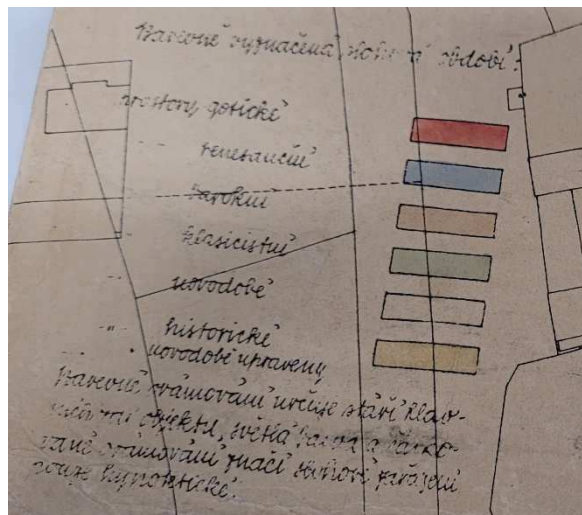 Barevně vyznačená slohová období:
prostory gotické
" renesanční
" barokní
" klasicistní
" novodobé
" historické
" novodobě upraveny
Barevné orámování určuje stáří hlav-
ních objektu, světlá barva a
orámování značí slohové zařazení
hypotetické.